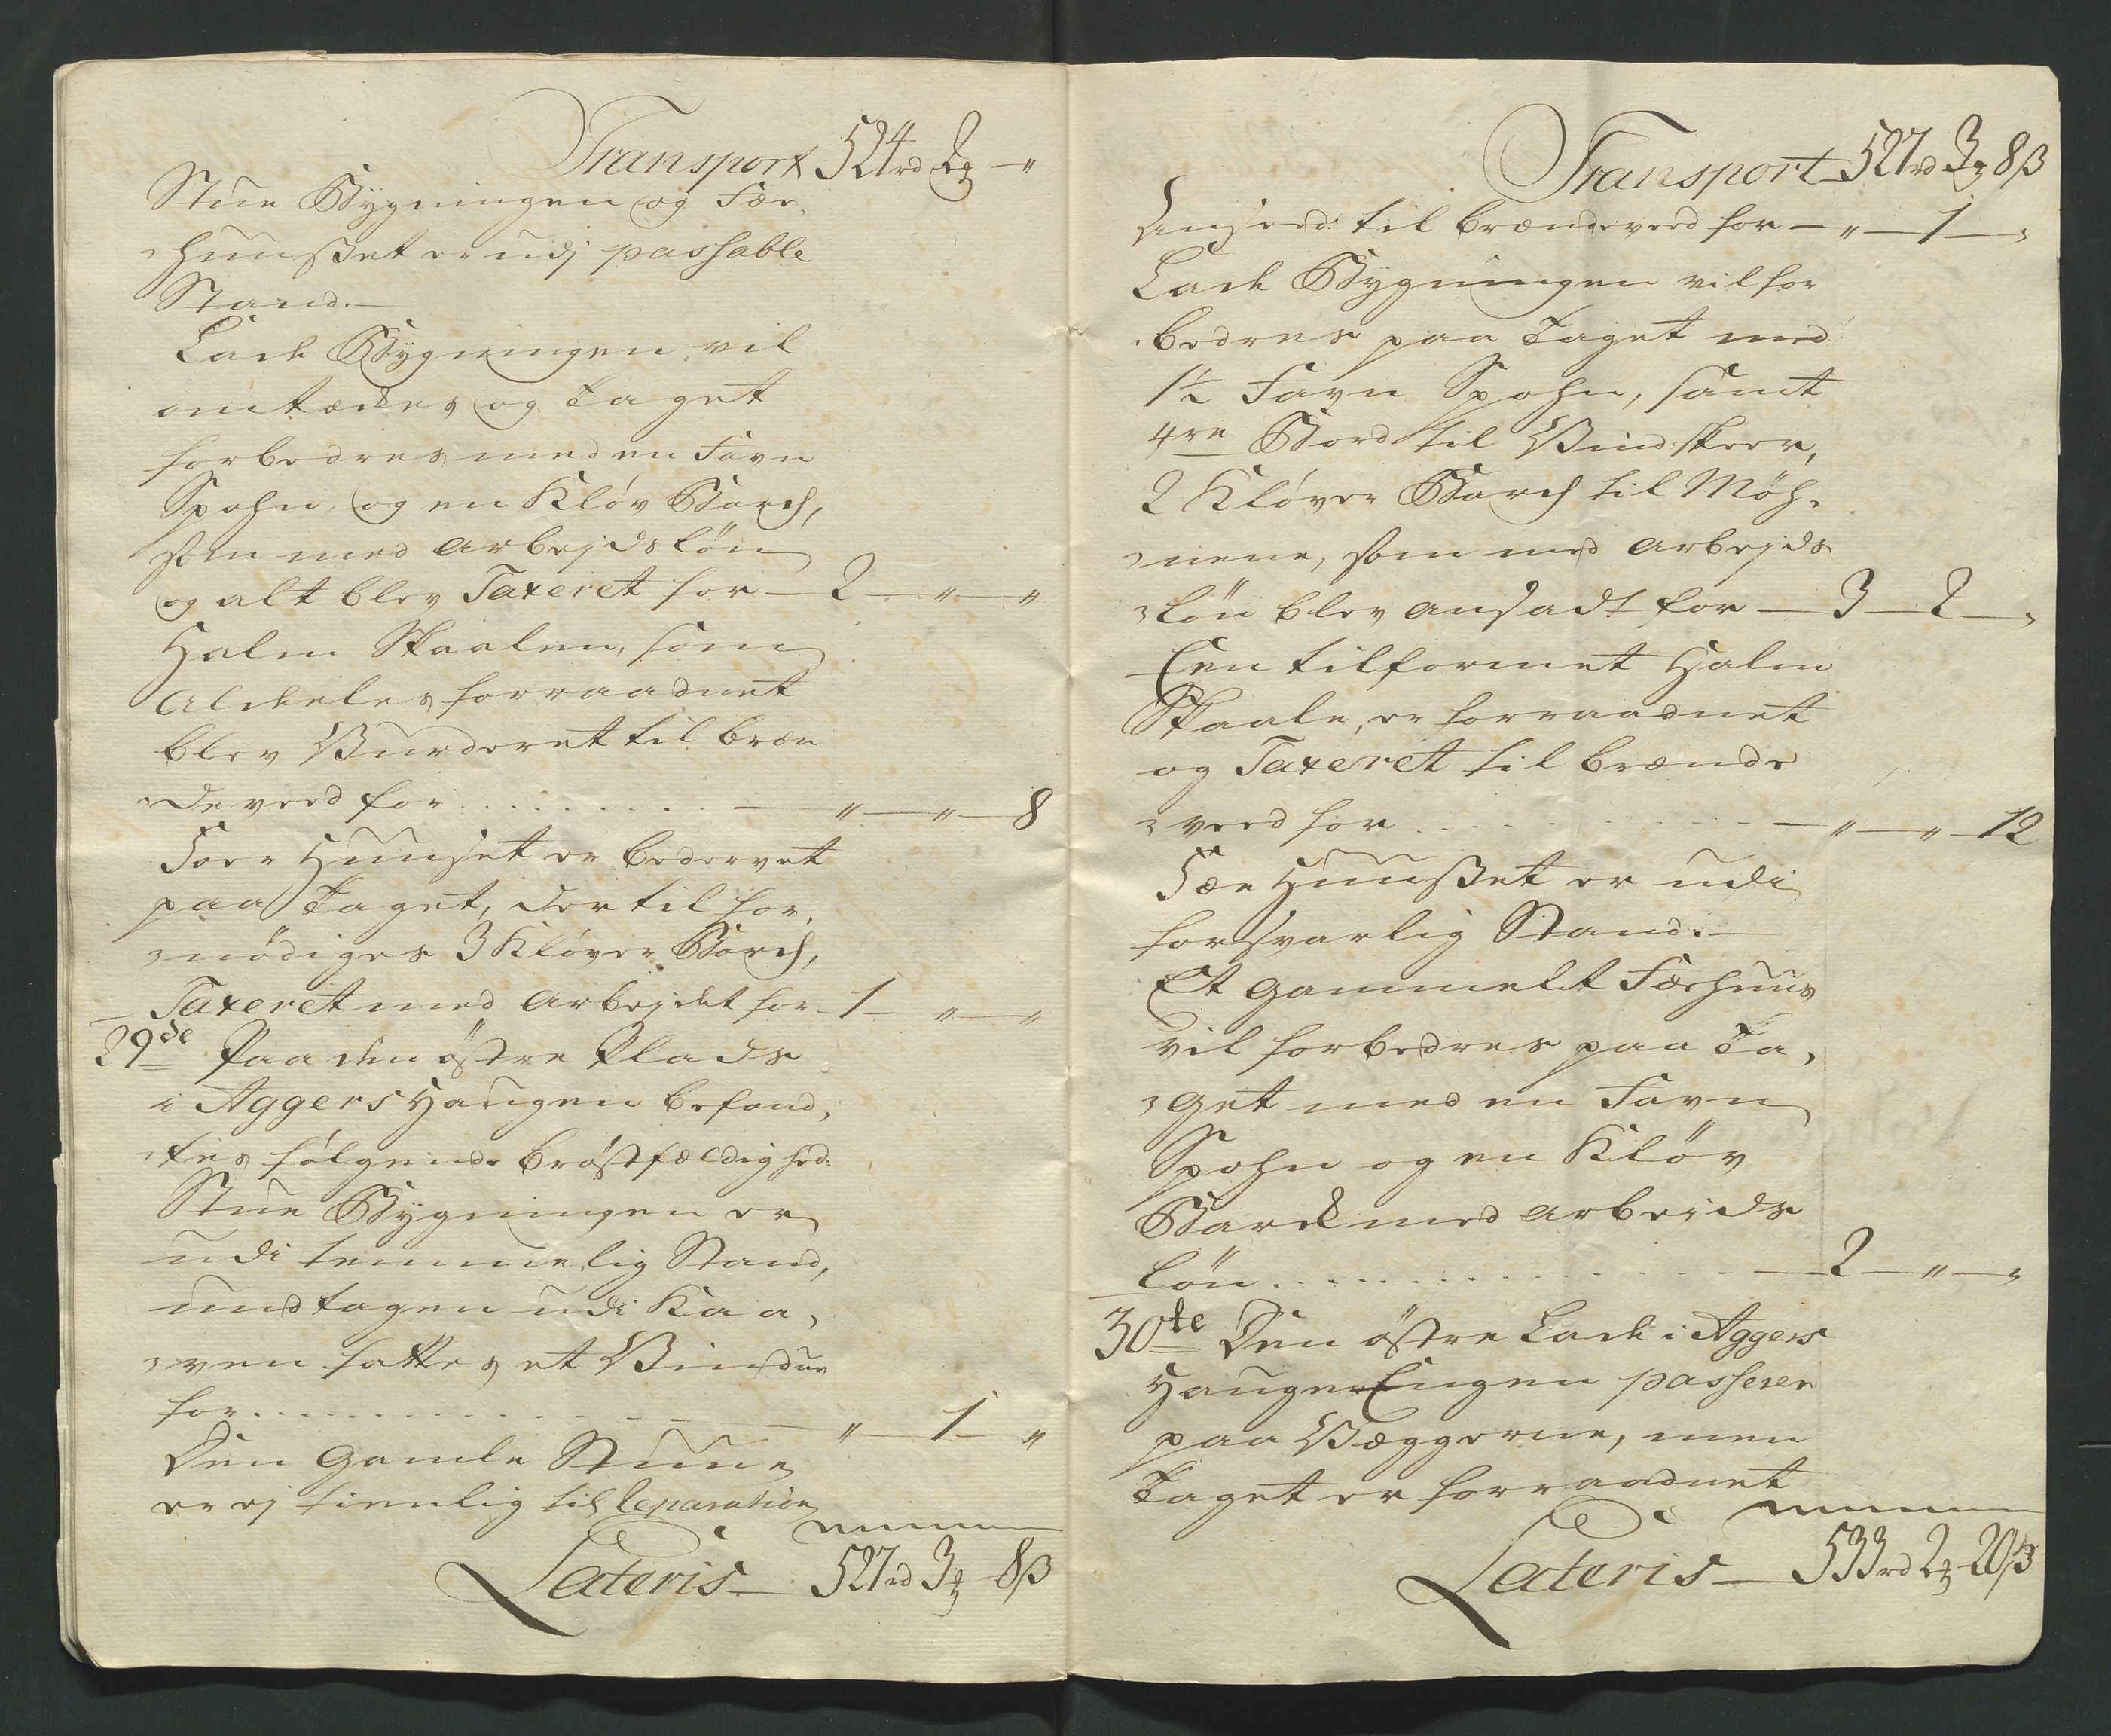 Transport 524rd 2 — "
Stue Bygningen og Fæe
huusset er udj passable
Stand. —
Lade Bygningen vil
omtækkes og Taget
forbedres med en Favn
Spohn, og en Kløv Barch,
som med arbejdslön
og alt blev Taxeret for — 2 — " — "
Halm Skaalen, som
Aldeles forraadnet
blev Vurderet til bræn
deveed for . . . . . . . . . — " — " — 8
Foer Huuset er bedervet
paa Taget, dertil for-
nödiges 3 Kløver Barch,
Taxeret med arbejdet for — 1 — " — "
29de Paa den östre Plads
i Aggers Haugen befand-
tes følgende bröstfældighed:
Stue Bygningen er
udi temmelig Stand,
undtagen udi Kaa-
ven fattes et Vindue
for . . . . . . . . . — " — 1 — "
Den gamle Stuue
er ej tienlig til Reparation
Lateris — 527rd 3 — 8ß
Transport 527rd 3 8ß
Anseed: til brændeveed for — " — 1 — "
Lade Bygningen vil for
bedres paa Taget med
1½ Favn Spohn, samt
4re Bord til Vindskeer,
2 Kløver Barch til Möh-
nene, som med arbejds
lön blev ansadt for — 3 — 2 — "
Een tilformet Halm
Skaale, er forraadnet
og Taxeret til brænde
veed for . . . . . . . . . — " — " — 12
Fæe Huusset er udi
forsvarlig Stand. —
Et gammelt Fæehuus
vil forbedres paa Ta-
get med en Favn
Spohn og en Kløv
Barck med arbeids
lön . . . . . . . . . — 2 — " — "
30te Den östre Lade i Aggers
Hauge Engen passerer
paa Væggerne, men
Taget er forraadnet
Lateris — 533rd 2 — 20ß